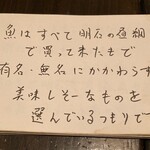 魚はすべて明石の昼網
で買って来たもで
有名・無名にかかわらず
美味しそーなものを
選んでいるつもりで